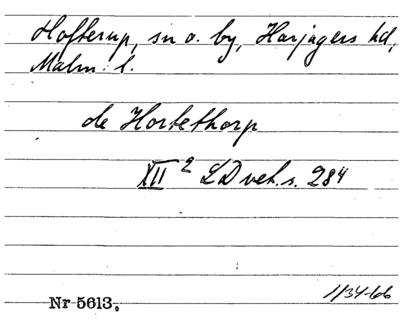 Hofterup, sn o. by, Harjagers hd,
Malm. l.
de Hortethorp
XII 2 LD vet. s. 284
1134-66
Nr 5613.